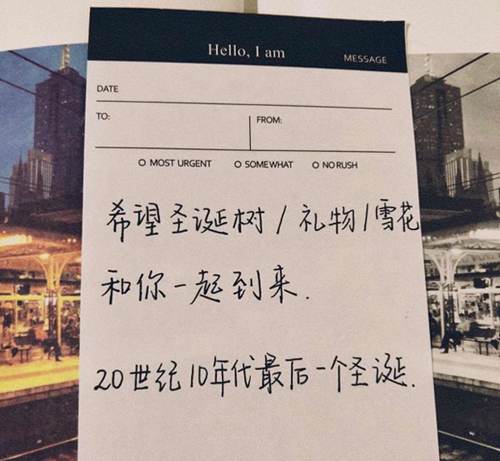 Hello, I am
MESSAGE
DATE
TO: FROM:
O MOST URGENT O SOMEWHAT O NO RUSH
希望圣诞树/礼物/雪花
和你一起到来.
20世纪10年代最后一个圣诞.